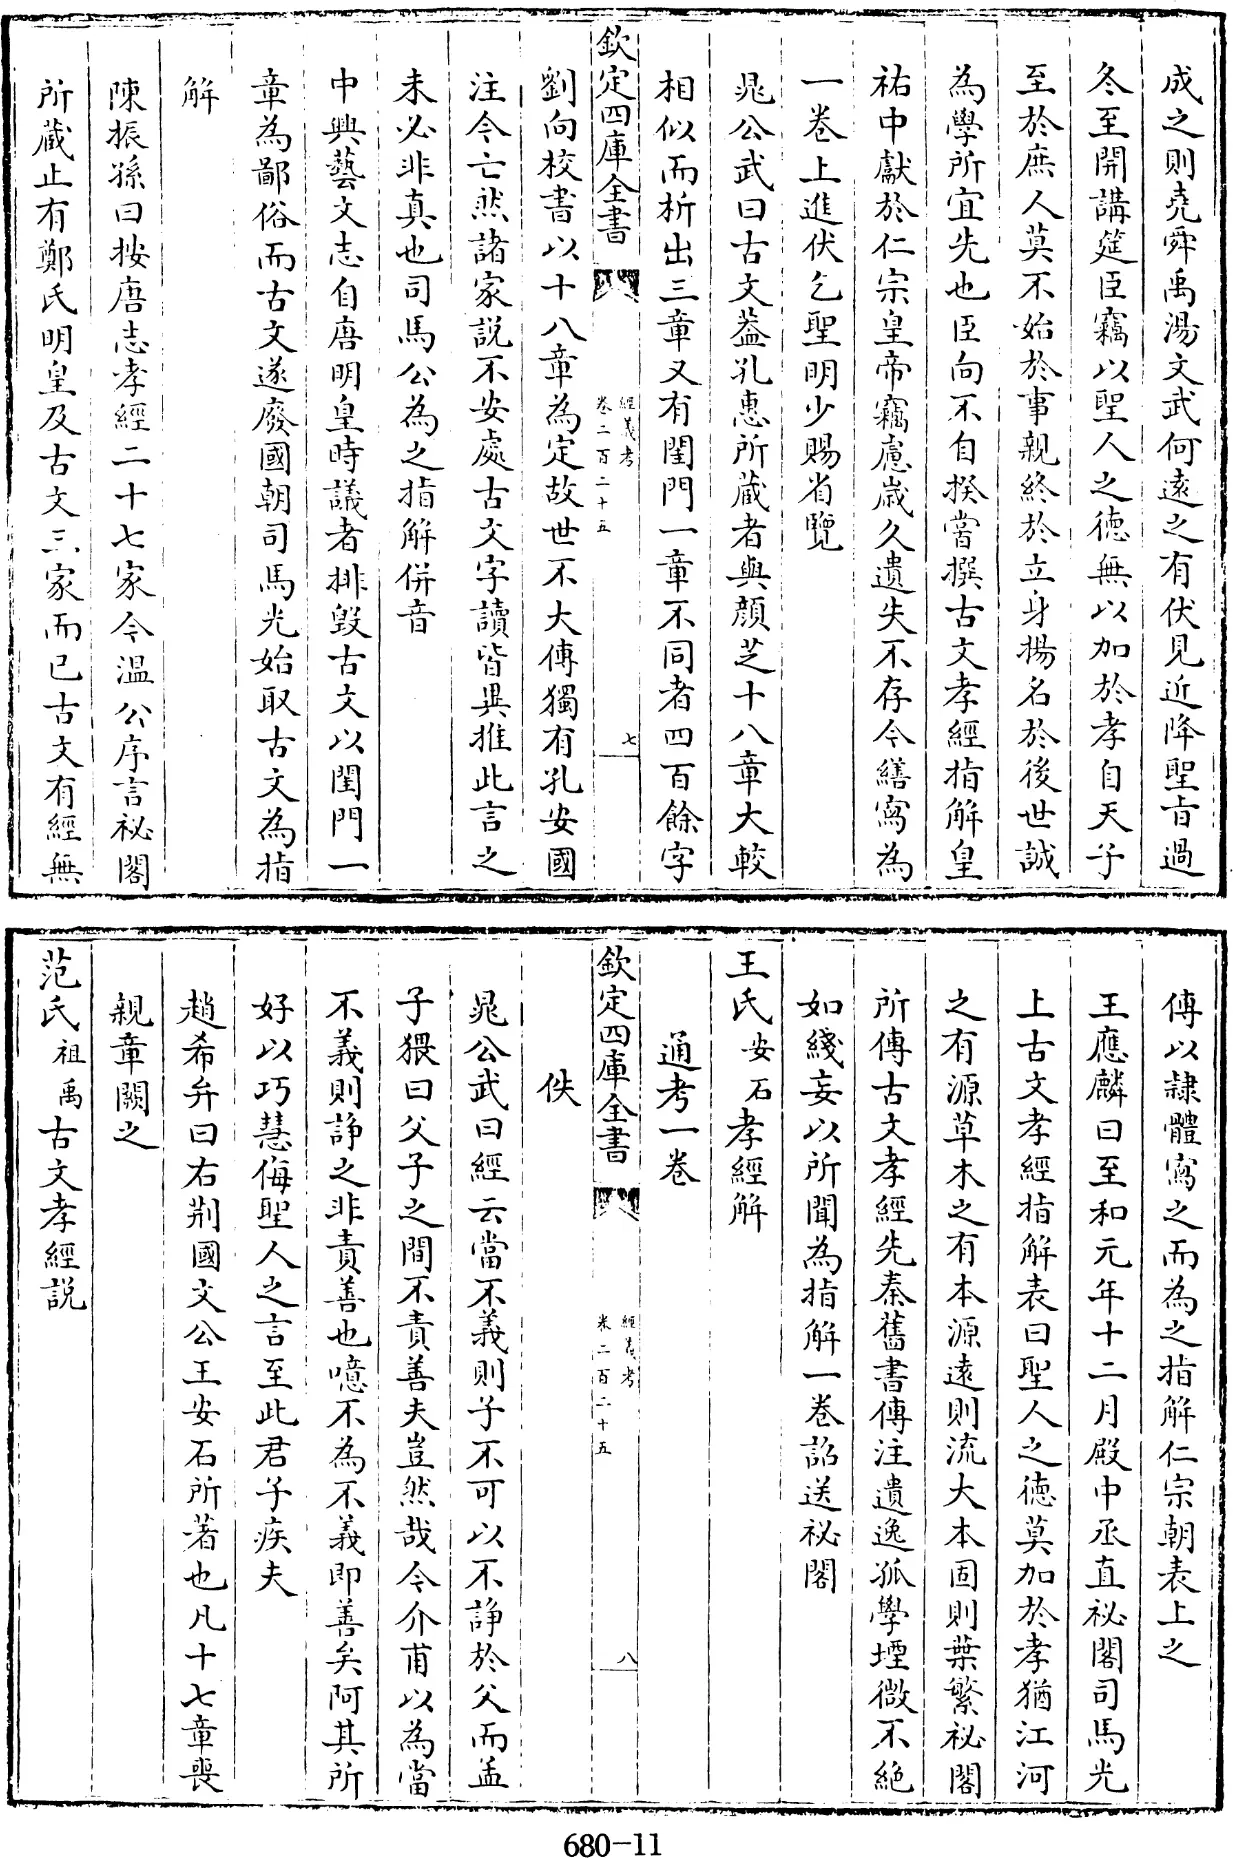 成之則堯舜禹湯文武何遠之有伏見近降聖旨過
冬至開講筵臣竊以聖人之徳無以加於孝自天子
至於庶人莫不始於事親終於立身揚名於後世誠
為學所宜先也臣向不自揆嘗撰古文孝經指解皇
祐中獻於仁宗皇帝竊慮歳久遺失不存今繕寫為
一卷上進伏乞聖明少賜省覽
晁公武曰古文葢孔惠所藏者與顔芝十八章大較
相似而析出三章又有閨門一章不同者四百餘字
欽定四庫全書
經義考
卷二百二十五
七
劉向校書以十八章為定故世不大傳獨有孔安國
注今亡然諸家説不安處古文字讀皆異推此言之
未必非真也司馬公為之指解併音
中興藝文志自唐明皇時議者排毀古文以閨門一
章為鄙俗而古文遂廢國朝司馬光始取古文為指
解
陳振孫曰按唐志孝經二十七家今温公序言祕閣
所藏止有鄭氏明皇及古文三家而已古文有經無
傳以隷體寫之而為之指解仁宗朝表上之
王應麟曰至和元年十二月殿中丞直祕閣司馬光
上古文孝經指解表曰聖人之徳莫加於孝猶江河
之有源草木之有本源遠則流大本固則葉繁祕閣
所傳古文孝經先秦舊書傳注遺逸孤學堙微不絶
如綫妄以所聞為指解一卷詔送祕閣
王氏安石孝經解
通考一卷
欽定四庫全書
經義考
卷二百二十五
八
佚
晁公武曰經云當不義則子不可以不諍於父而孟
子猥曰父子之間不責善夫豈然哉今介甫以為當
不義則諍之非責善也噫不為不義即善矣阿其所
好以巧慧侮聖人之言至此君子疾夫
趙希弁曰右荆國文公王安石所著也凡十七章喪
親章闕之
范氏祖禹古文孝經説
680-11